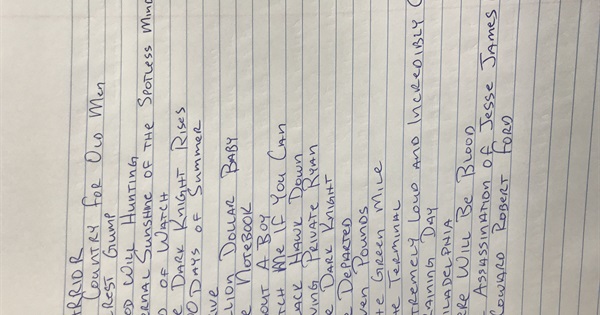 ARRIOR
COUNTRY FOR OLD MEN
REST GUMP
OOD WILL HUNTING
ERNAL SUNSHINE OF THE SPOTLESS MIND
D OF WATCH
E DARK KNIGHT RISES
00 DAYS OF SUMMER
IVE
LION DOLLAR BABY
E NOTEBOOK
OUT A BOY
TCH ME IF YOU CAN
ACK HAWK DOWN
VING PRIVATE RYAN
E DARK KNIGHT
E DEPARTED
VEN POUNDS
HE GREEN MILE
HE TERMINAL
TREMELY LOUD AND INCREDIBLY C
AINING DAY
ILADELPHIA
ERE WILL BE BLOOD
E ASSASSINATION OF JESSE JAMES
COWARD ROBERT FORD